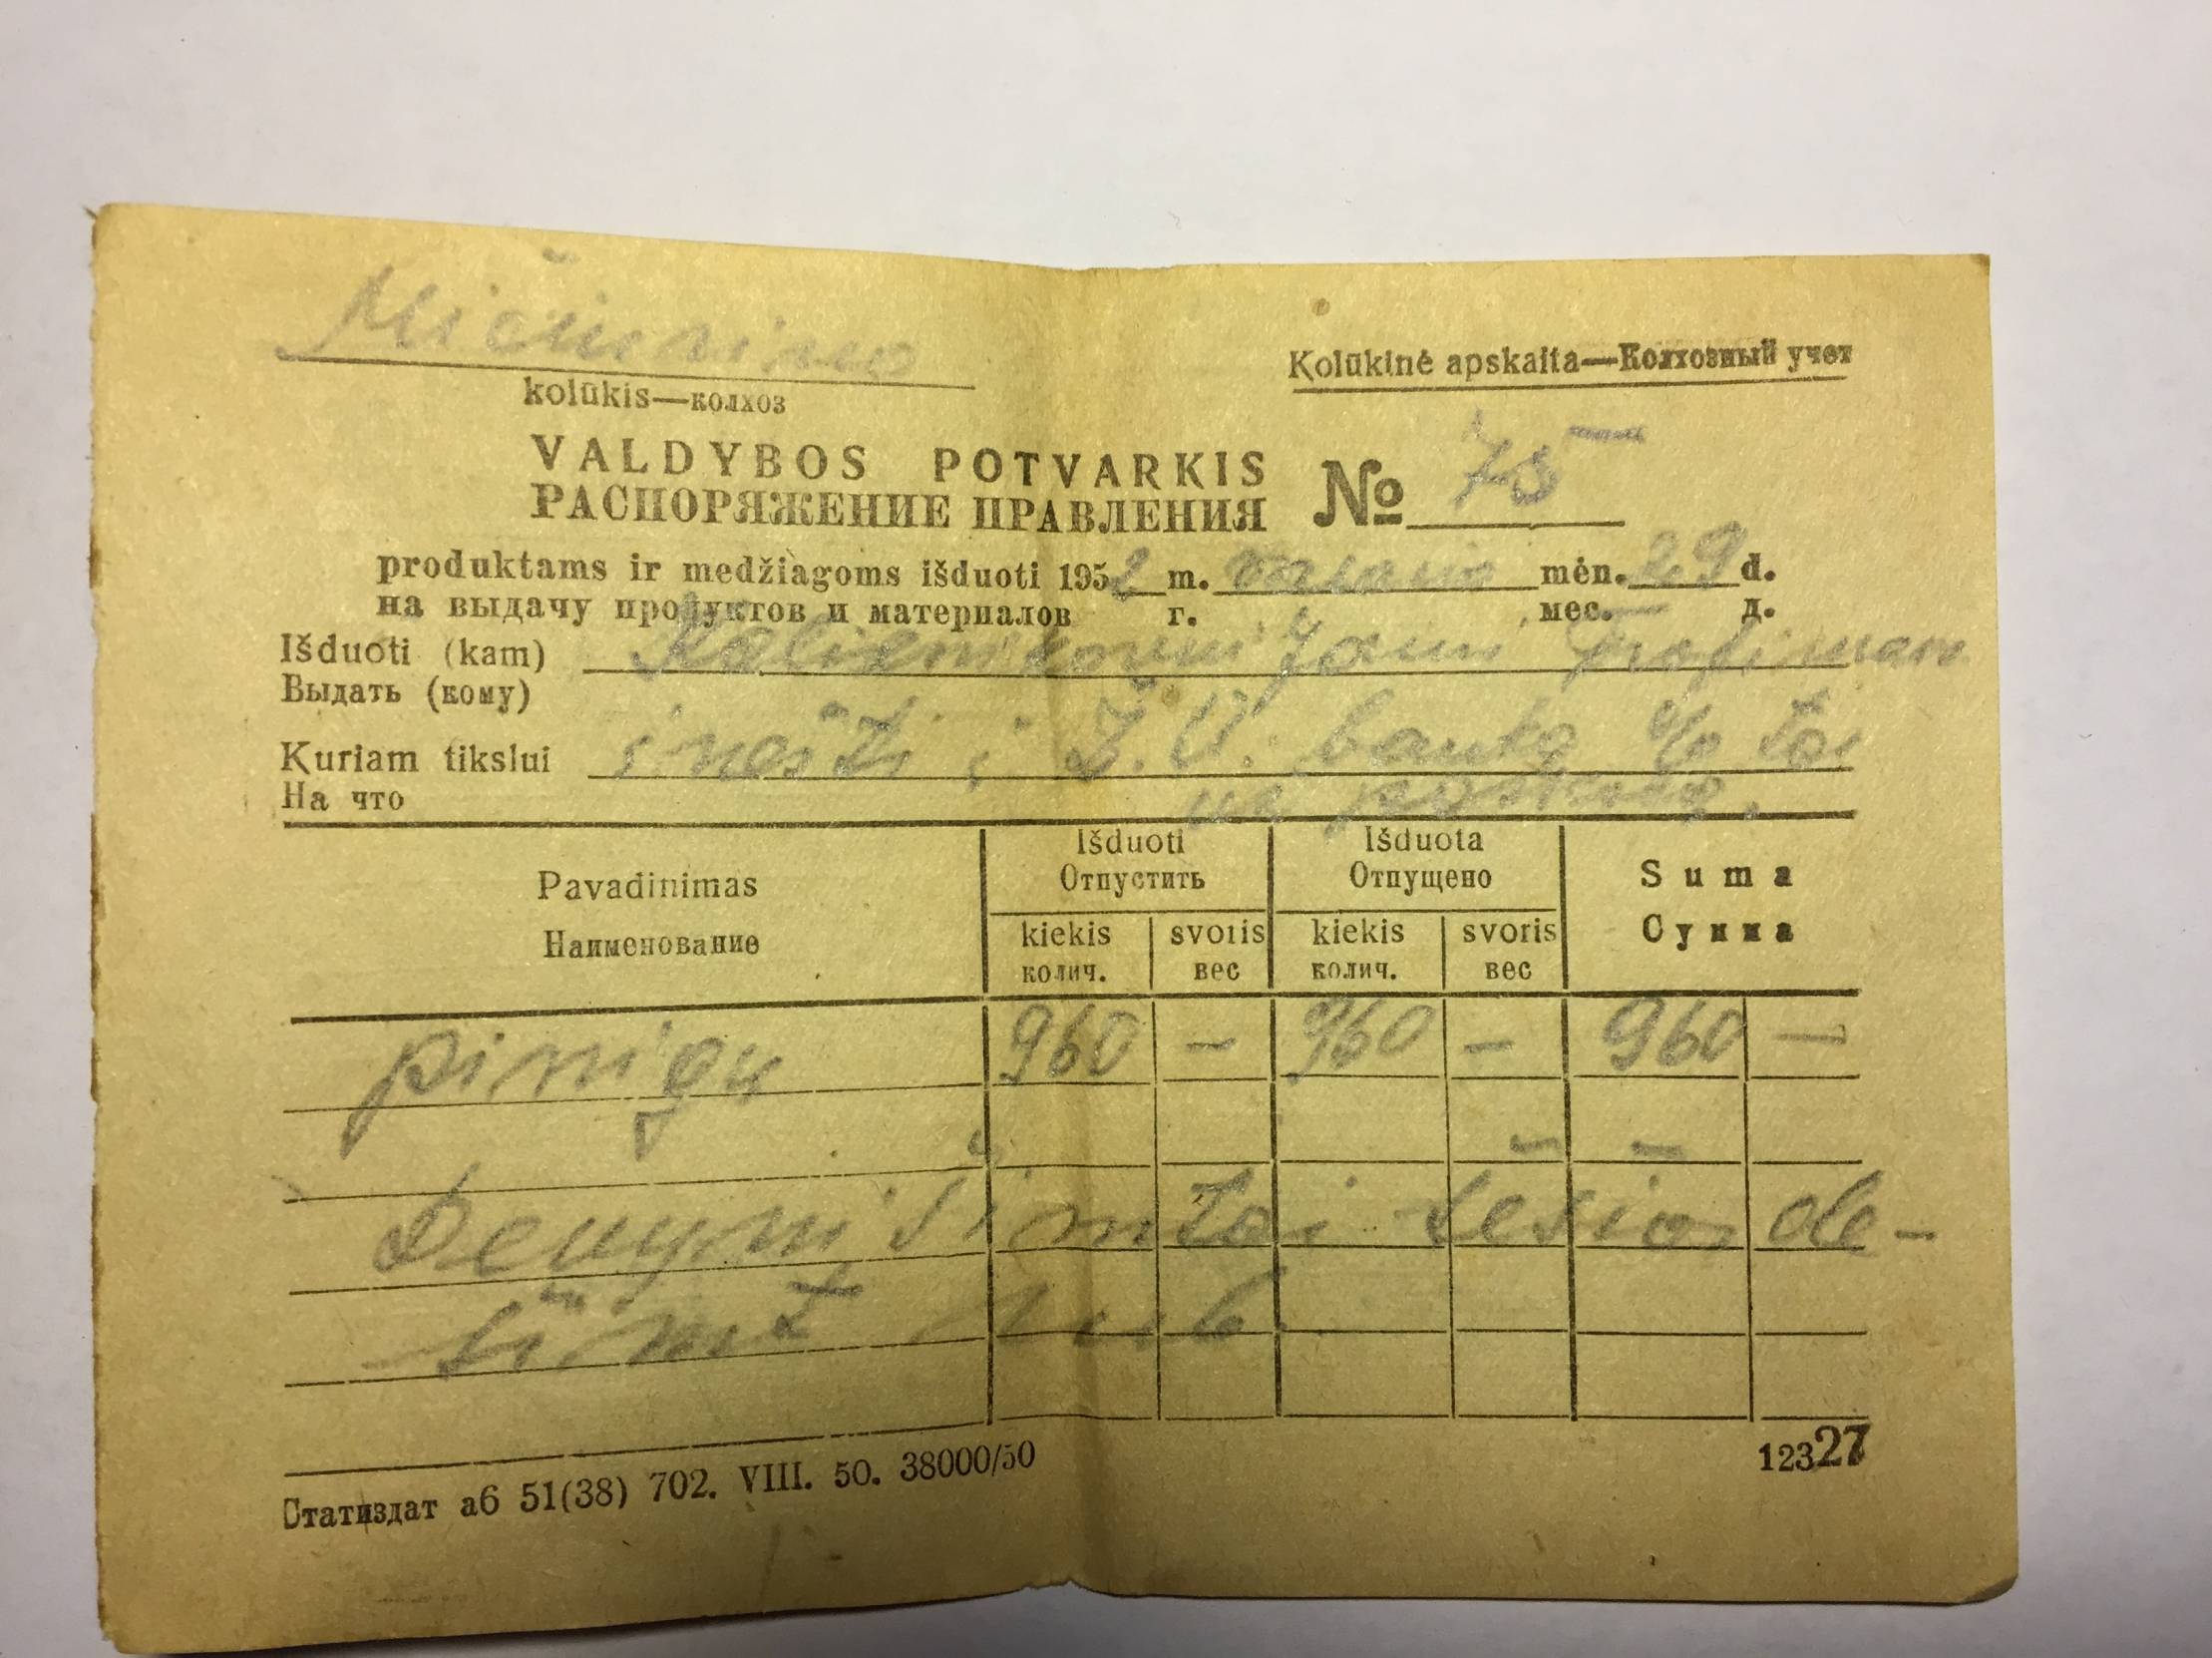 Mičiurino
kolūkis—колхоз
Kolūkinė apskaita—Колхозный учет
VALDYBOS POTVARKIS
РАСПОРЯЖЕНИЕ ПРАВЛЕНИЯ № 75
produktams ir medžiagoms išduoti 1952 m. vasario mėn. 29 d.
на выдачу продуктов и материалов г. мес. д.
Išduoti (kam) Jonui
Выдать (кому)
Kuriam tikslui įnešti į Ž.Ū. banką
На что
Pavadinimas Išduoti Išduota Suma
Наименование Отпустить Отпущено Сумма
kiekis svoris kiekis svoris
колич. вес колич. вес
pinigų 960 — 960 — 960 —
Devyni šimtai šešias de-
šimt rub.
Статиздат аб 51(38) 702. VIII. 50. 38000/50
12327